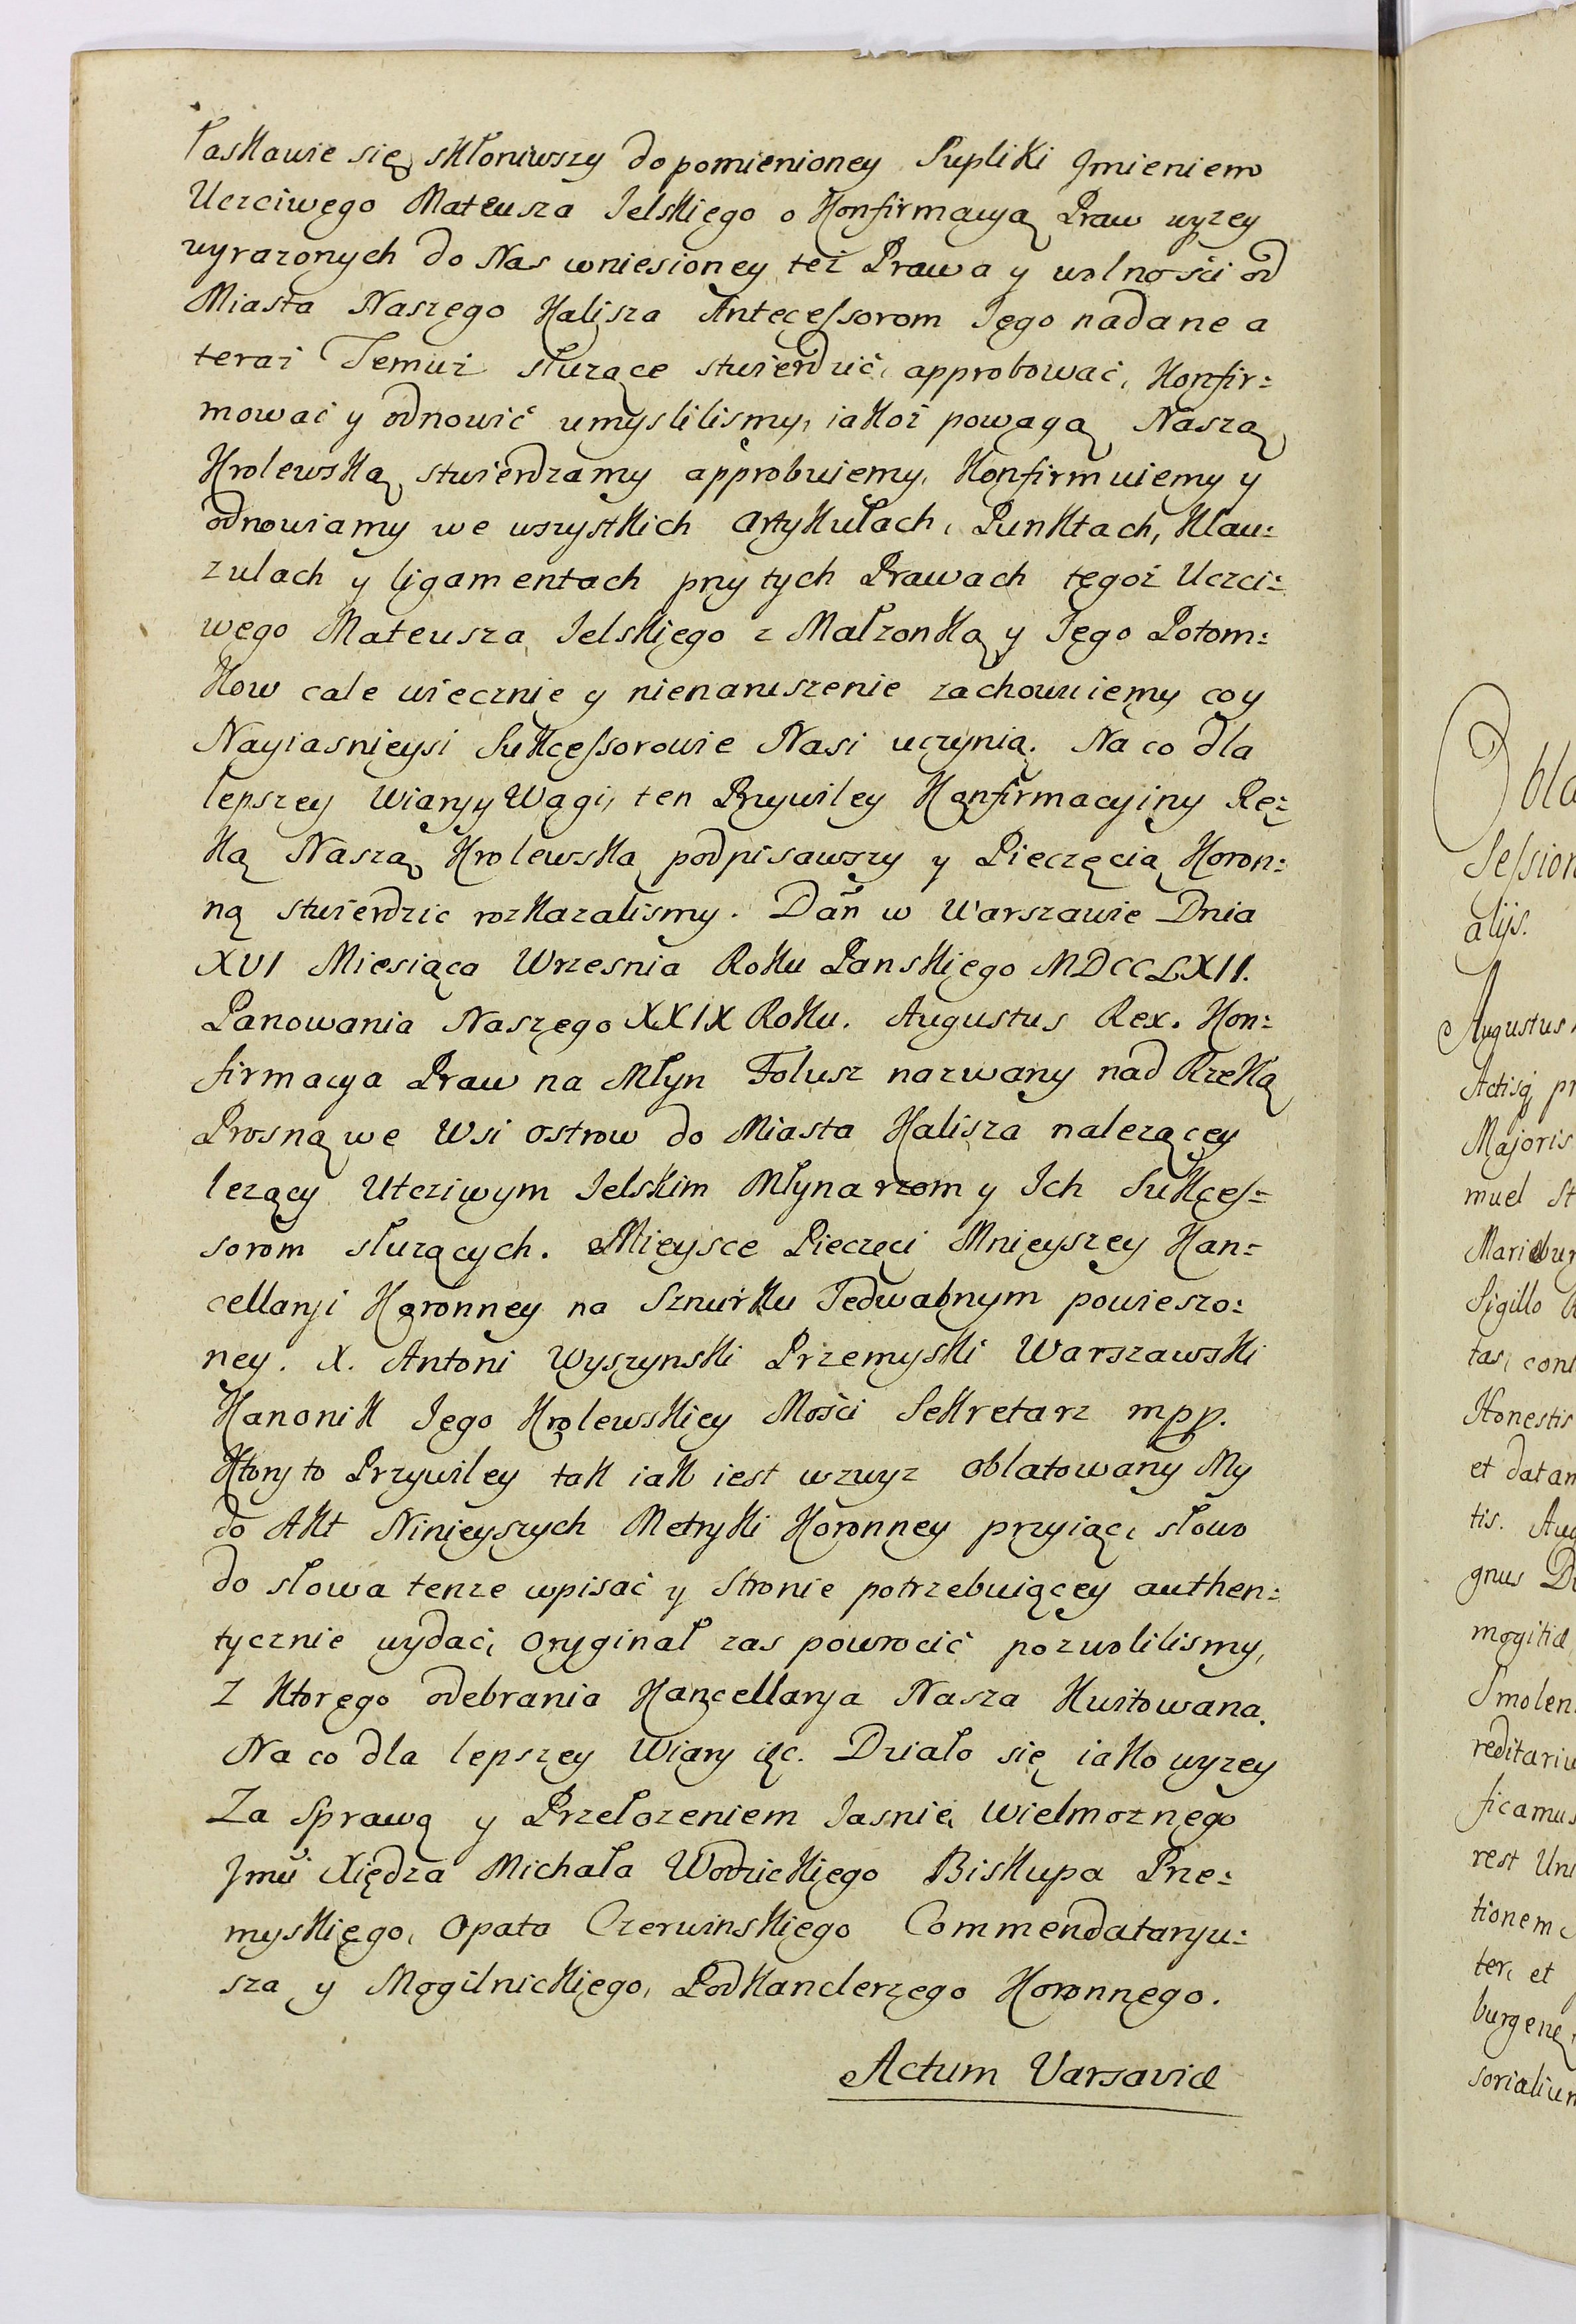 łaskawie się skłoniwszy do pomienioney Supliki Jmieniem
Uczciwego Mateusza Jelskiego o Konfirmacyą Praw wyzey
wyrazonych do Nas wniesioney też Prawa y wolności od
Miasta Naszego Kalisza Antecessorom Jego nadane a
teraż Temuż słuzące stwierdzić, approbować, Konfir=
mować y odnowić umyslilismy, iakoż powagą Naszą
Krolewską stwierdzamy approbuiemy, Konfirmuiemy y
odnowiamy we wszystkich Artykułach, Punktach, Klau=
zulach y ligamentach przy tych Prawach tegoż Uczci=
wego Mateusza Jelskiego z Małzonką y Jego Potom=
kow cale wiecznie y nienaruszenie zachowuiemy co y
Nayiasnieysi Sukcessorowie Nasi uczynią. Na co dla
lepszey Wiary y Wagi, ten Przywiley Konfirmacyiny Rę=
ką Naszą Krolewską podpisawszy y Pieczęcią Koron=
ną stwierdzic rozkazalismy. Dań w Warszawie Dnia
XVI Miesiąca Wrzesnia Roku Panskiego MDCCLXII.
Panowania Naszego XXIX Roku. Augustus Rex. Kon=
firmacya Praw na Młyn Folusz nazwany nad Rzeką
Prosną we Wsi Ostrow do Miasta Kalisza nalezącey
lezący Utcziwym Jelskim Młynarzom y Ich Sukces=
sorom słuzących. Mieysce Pieczęci Mnieyszey Kan=
cellaryi Koronney na Sznurku Jedwabnym powieszo=
ney. X. Antoni Wyszynski Przemyski Warszawski
Kanonik Jego Krolewskiey Mości Sekretarz mpp.
Ktory to Przywiley tak iak iest wzwyz oblatowany My
do Akt Ninieyszych Metryki Koronney przyiąć, słowo
do słowa tenze wpisać y Stronie potrzebuiącey authen=
tycznie wydać, Oryginał zas powrocić pozwolilismy,
z ktorego odebrania Kancellarya Nasza Kwitowana.
Na co dla lepszey Wiary ięc. Działo się iako wyzey
Za Sprawą y Przełozeniem Jasnie Wielmoznego
Jmći Xiędza Michała Wodzickiego Biskupa Prze=
myskiego, Opata Czerwinskiego Commendataryu=
sza y Mogilnickiego, Podkanclerzego Koronnego.
Actum Varsaviæ
Obla
Session
alijs.
Augustus
Actisq pr
Majoris
muel St
Mariæbur
Sigillo R
tas, cont
Honestis
et datam
tis. Aug
gnus D
mogitiæ
Smolen
reditariu
ficamus
rest Uni
tionem
ter, et
burgene
sorialium